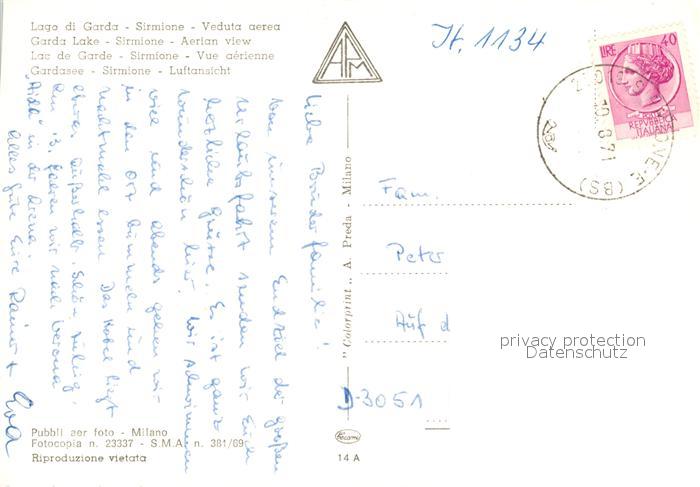 Lago di Garda - Sirmione - Veduta aerea
Garda Lake - Sirmione - Aerian view
Lac de Garde - Sirmione - Vue aérienne
Gardasee - Sirmione - Luftansicht
APM
It. 1134
LIRE 40
POSTE
REPVBBLICA
ITALIANA
SIRMIONE (BS)
10.8.71
Liebe Bruderfamilie!
Von unserem Endziel der großen
Urlaubsfahrt senden wir Euch
herzliche Grüße. Es ist ganz
wunderschön hier. Wir schwimmen
viel und abends gehen wir
in den Ort bummeln und
nachtmahl essen. Das Hotel liegt
etwas außerhalb. Schön ruhig.
Am 13. fahren wir nach Verona
"Aida" in der Arena.
Alles Gute Eure Rainer + Eva
"Colorprint" A. Preda - Milano
Fam.
Peter
Auf d
D-3051
privacy protection
Datenschutz
Pubbli aer foto - Milano
Fotocopia n. 23337 - S.M.A. n. 381/69
Riproduzione vietata
14 A